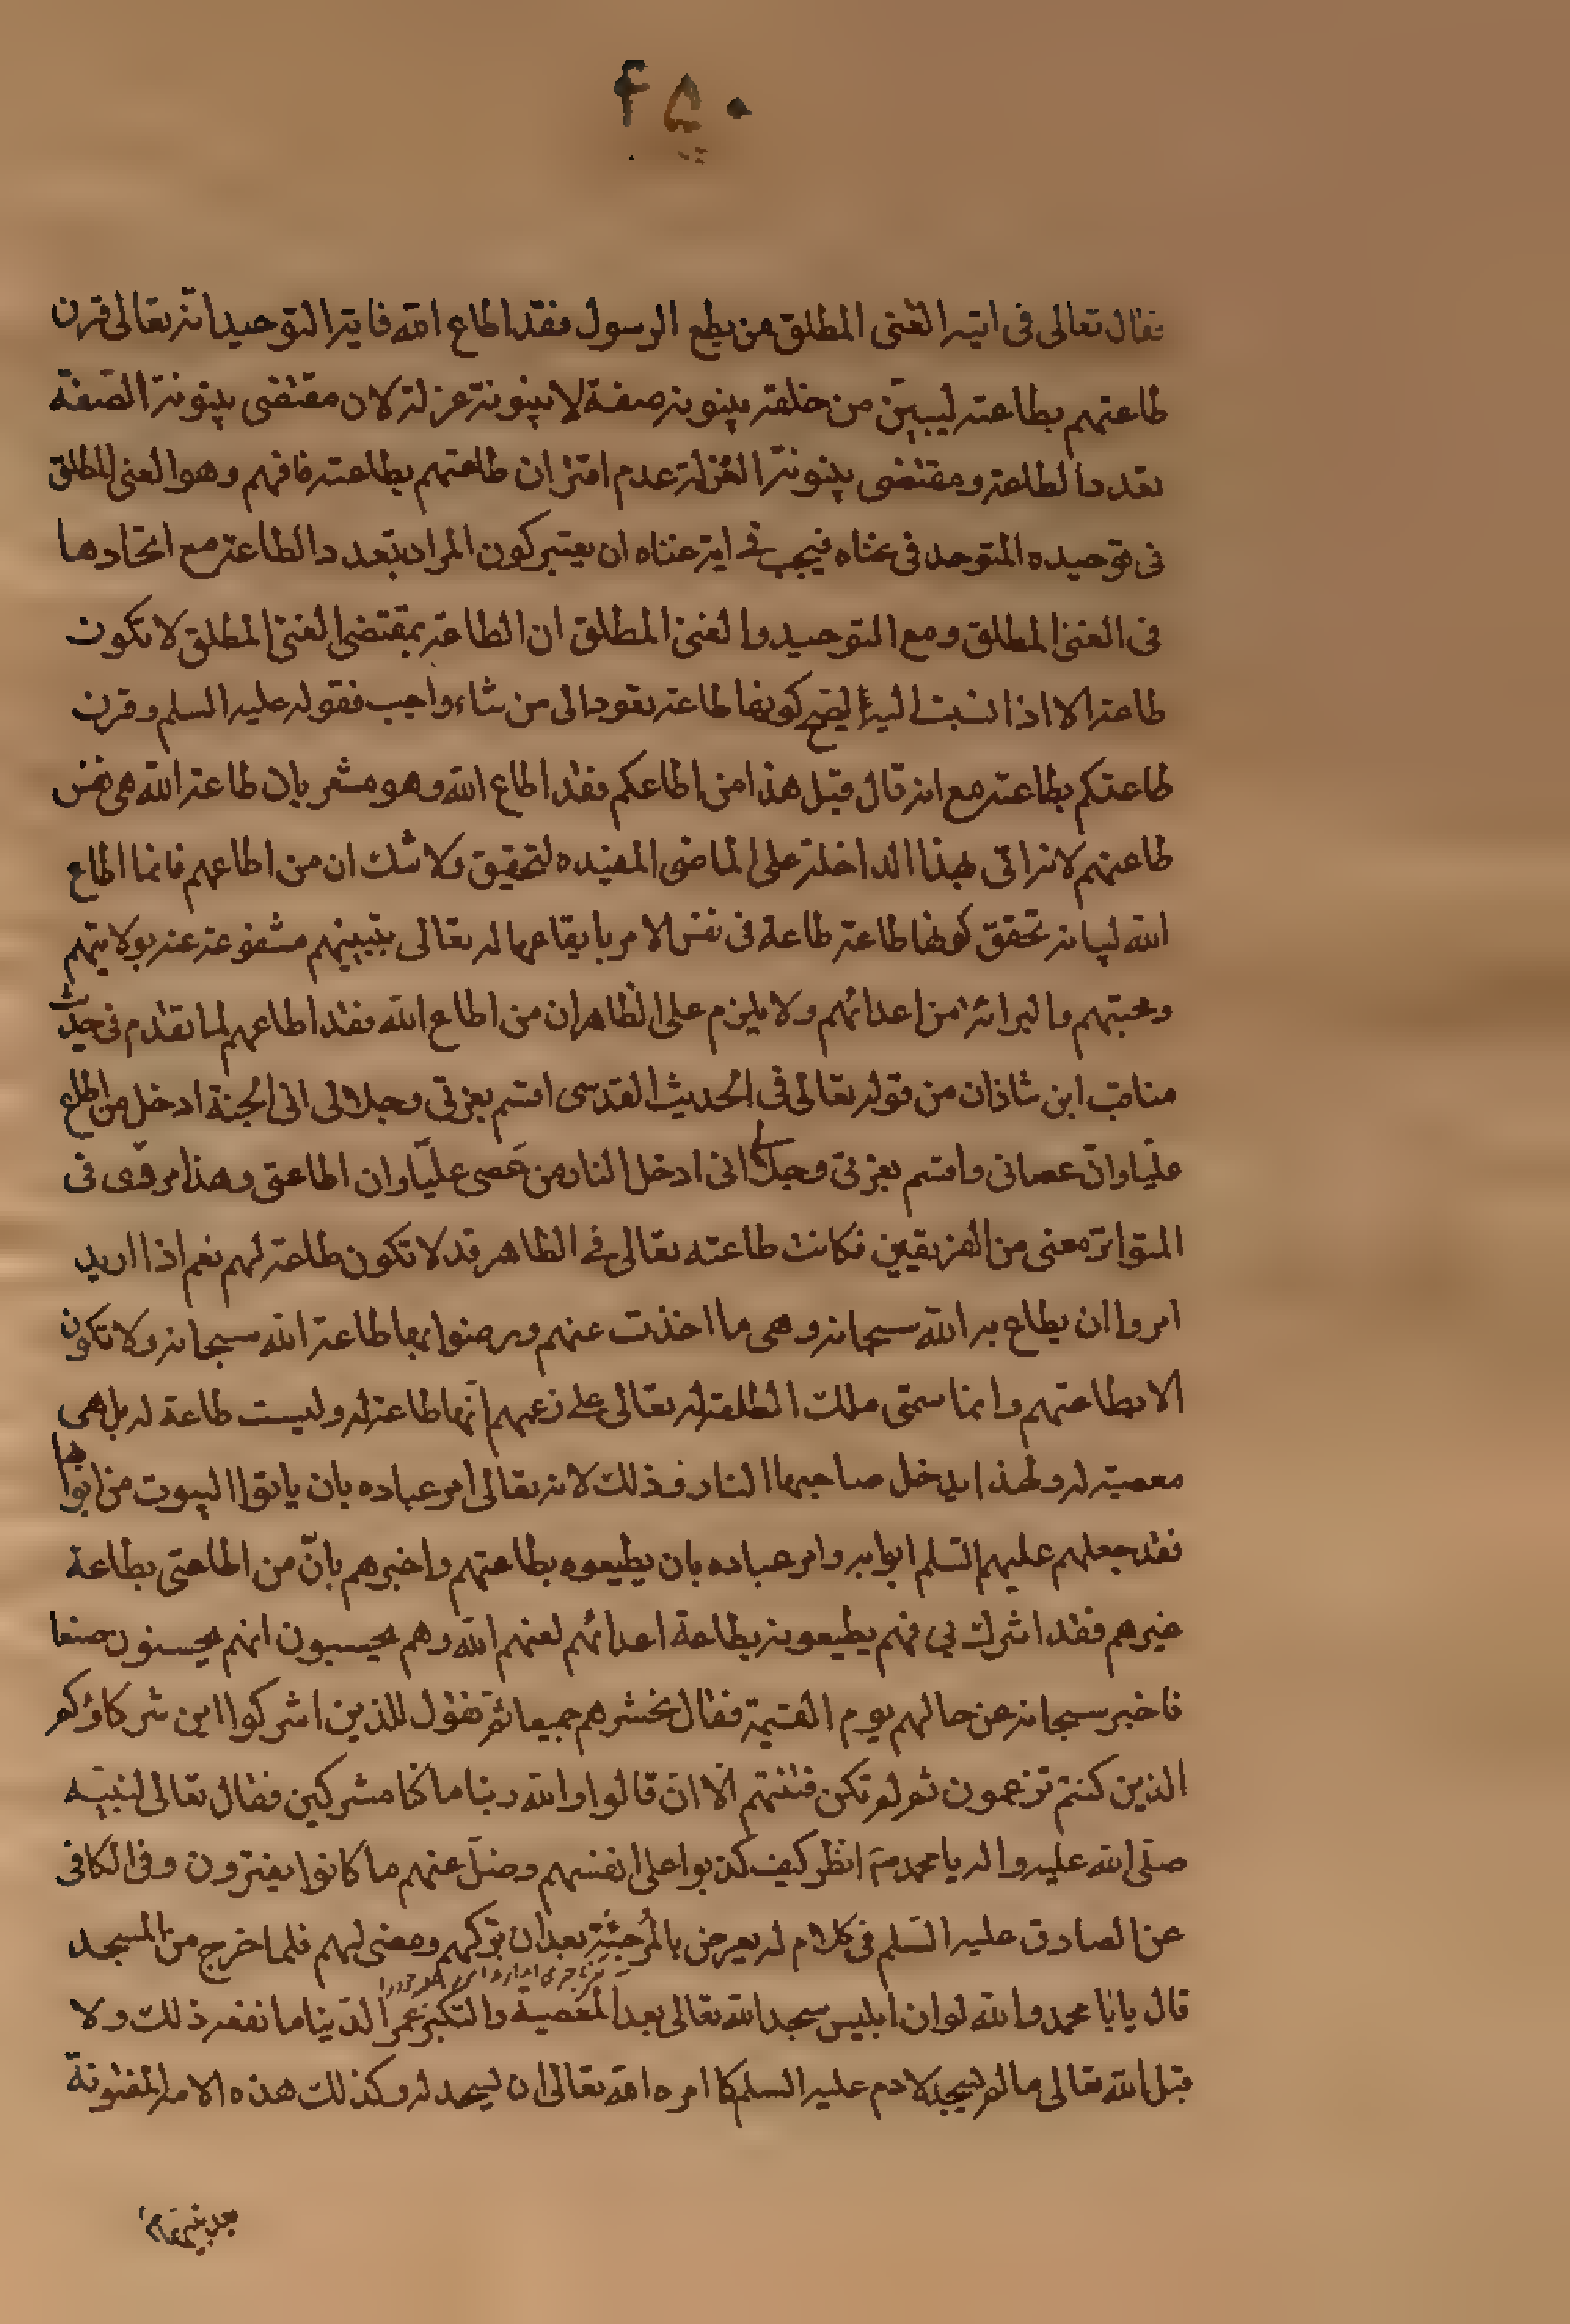 ۴۵۰
فقال تعالى فى اية الغنى المطلق من يطع الرسول فقد اطاع الله فاية التوحيد انه تعالى قرن
طاعتهم بطاعته ليبيّن من خلقه بينونة صفة لا بينونة عزلة لان مقتضى بينونة الصّفة
تعدد الطاعة ومقتضى بينونة العزلة عدم اقتران طاعتهم بطاعته فافهم وهو الغنى المطلق
فى توحيده المتوحد فى غناه فيجب فى اية غناه ان يعتبر كون المراد بتعدد الطاعة مع اتحادها
فى الغنى المطلق ومع التوحيد والغنى المطلق ان الطاعة بمقتضى الغنى المطلق لا تكون
طاعة الا اذا نسبت اليه ليصح كونها طاعة يعود الى من شاء واجب فقوله عليه السلم وقرن
طاعتكم بطاعته مع انه قال قبل هذا من اطاعكم فقد اطاع الله وهو مشعر بان طاعة الله هى نفس
طاعتهم لانه اتى بقد الداخلة على الماضى المفيده لتحقيق ولا شك ان من اطاعهم فانما اطاع
الله لبيانه تحقق كونها طاعة طاعة فى نفس الامر بايقاعها له تعالى بتبيينهم مشفوعة عنه بولايتهم
ومحبتهم والبرائة من اعدائهم ولا يلزم على الظاهر ان من اطاع الله فقد اطاعهم لما تقدم فى حديث
مناقب ابن شاذان من قوله تعالى فى الحديث القدسى اقسم بعزتى وجلالى انى الجنة ادخل من اطاع
عليا وان عصانى واقسم بعزتى وجلالى انى ادخل النار من عَصى عليّا وان اطاعنى وهذا مروى فى
المتواتر معنى من الفريقين فكانت طاعته تعالى فى الظاهر قد لا تكون طاعة لهم نعم اذا اريد
امروا ان يطاع به الله سبحانه وهى ما اخذت عنهم ورضوا بها طاعة الله سبحانه ولا تكون
الا بطاعتهم وانما سمّى تلك الطاعة له تعالى على زعمهم انّها طاعة له وليست طاعة له بل هى
معصية له ولهذا يدخل صاحبها النار وذلك لانه تعالى امر عباده بان ياتوا البيوت من ابوابها
فقد جعلهم عليهم السّلم ابوابه وامر عباده بان يطيعوه بطاعتهم واخبرهم بانّ من اطاعنى بطاعة
غيرهم فقد اشرك بى فهم يطيعونه بطاعة اعدائهم لعنهم الله وهم يحسبون انهم يحسنون صنعا
فاخبر سبحانه عن حالهم يوم القيمة فقال نحشرهم جميعا ثم نقول للذين اشركوا اين شركاؤكم
الذين كنتم تزعمون ثم لم تكن فتنتهم الّا ان قالوا والله ربنا ما كنا مشركين فقال تعالى لنبيّه
صلّى الله عليه واله يا محمد ص انظر كيف كذبوا على انفسهم وضلّ عنهم ما كانوا يفترون وفى الكافى
عن الصادق عليه السّلم فى كلام له يعرض بالمُرجئة بعد ان تركهم ومضى لهم فلما خرج من المسجد
قال يابا محمد والله لو ان ابليس سجد لله تعالى بعد المعصية والتكبر عمر الدّنيا ما نفعه ذلك ولا
قبل الله تعالى ما لم يسجد لادم عليه السلم كما امره الله تعالى ان يسجد له وكذلك هذه الامة المفتونة
بعد نبيهم